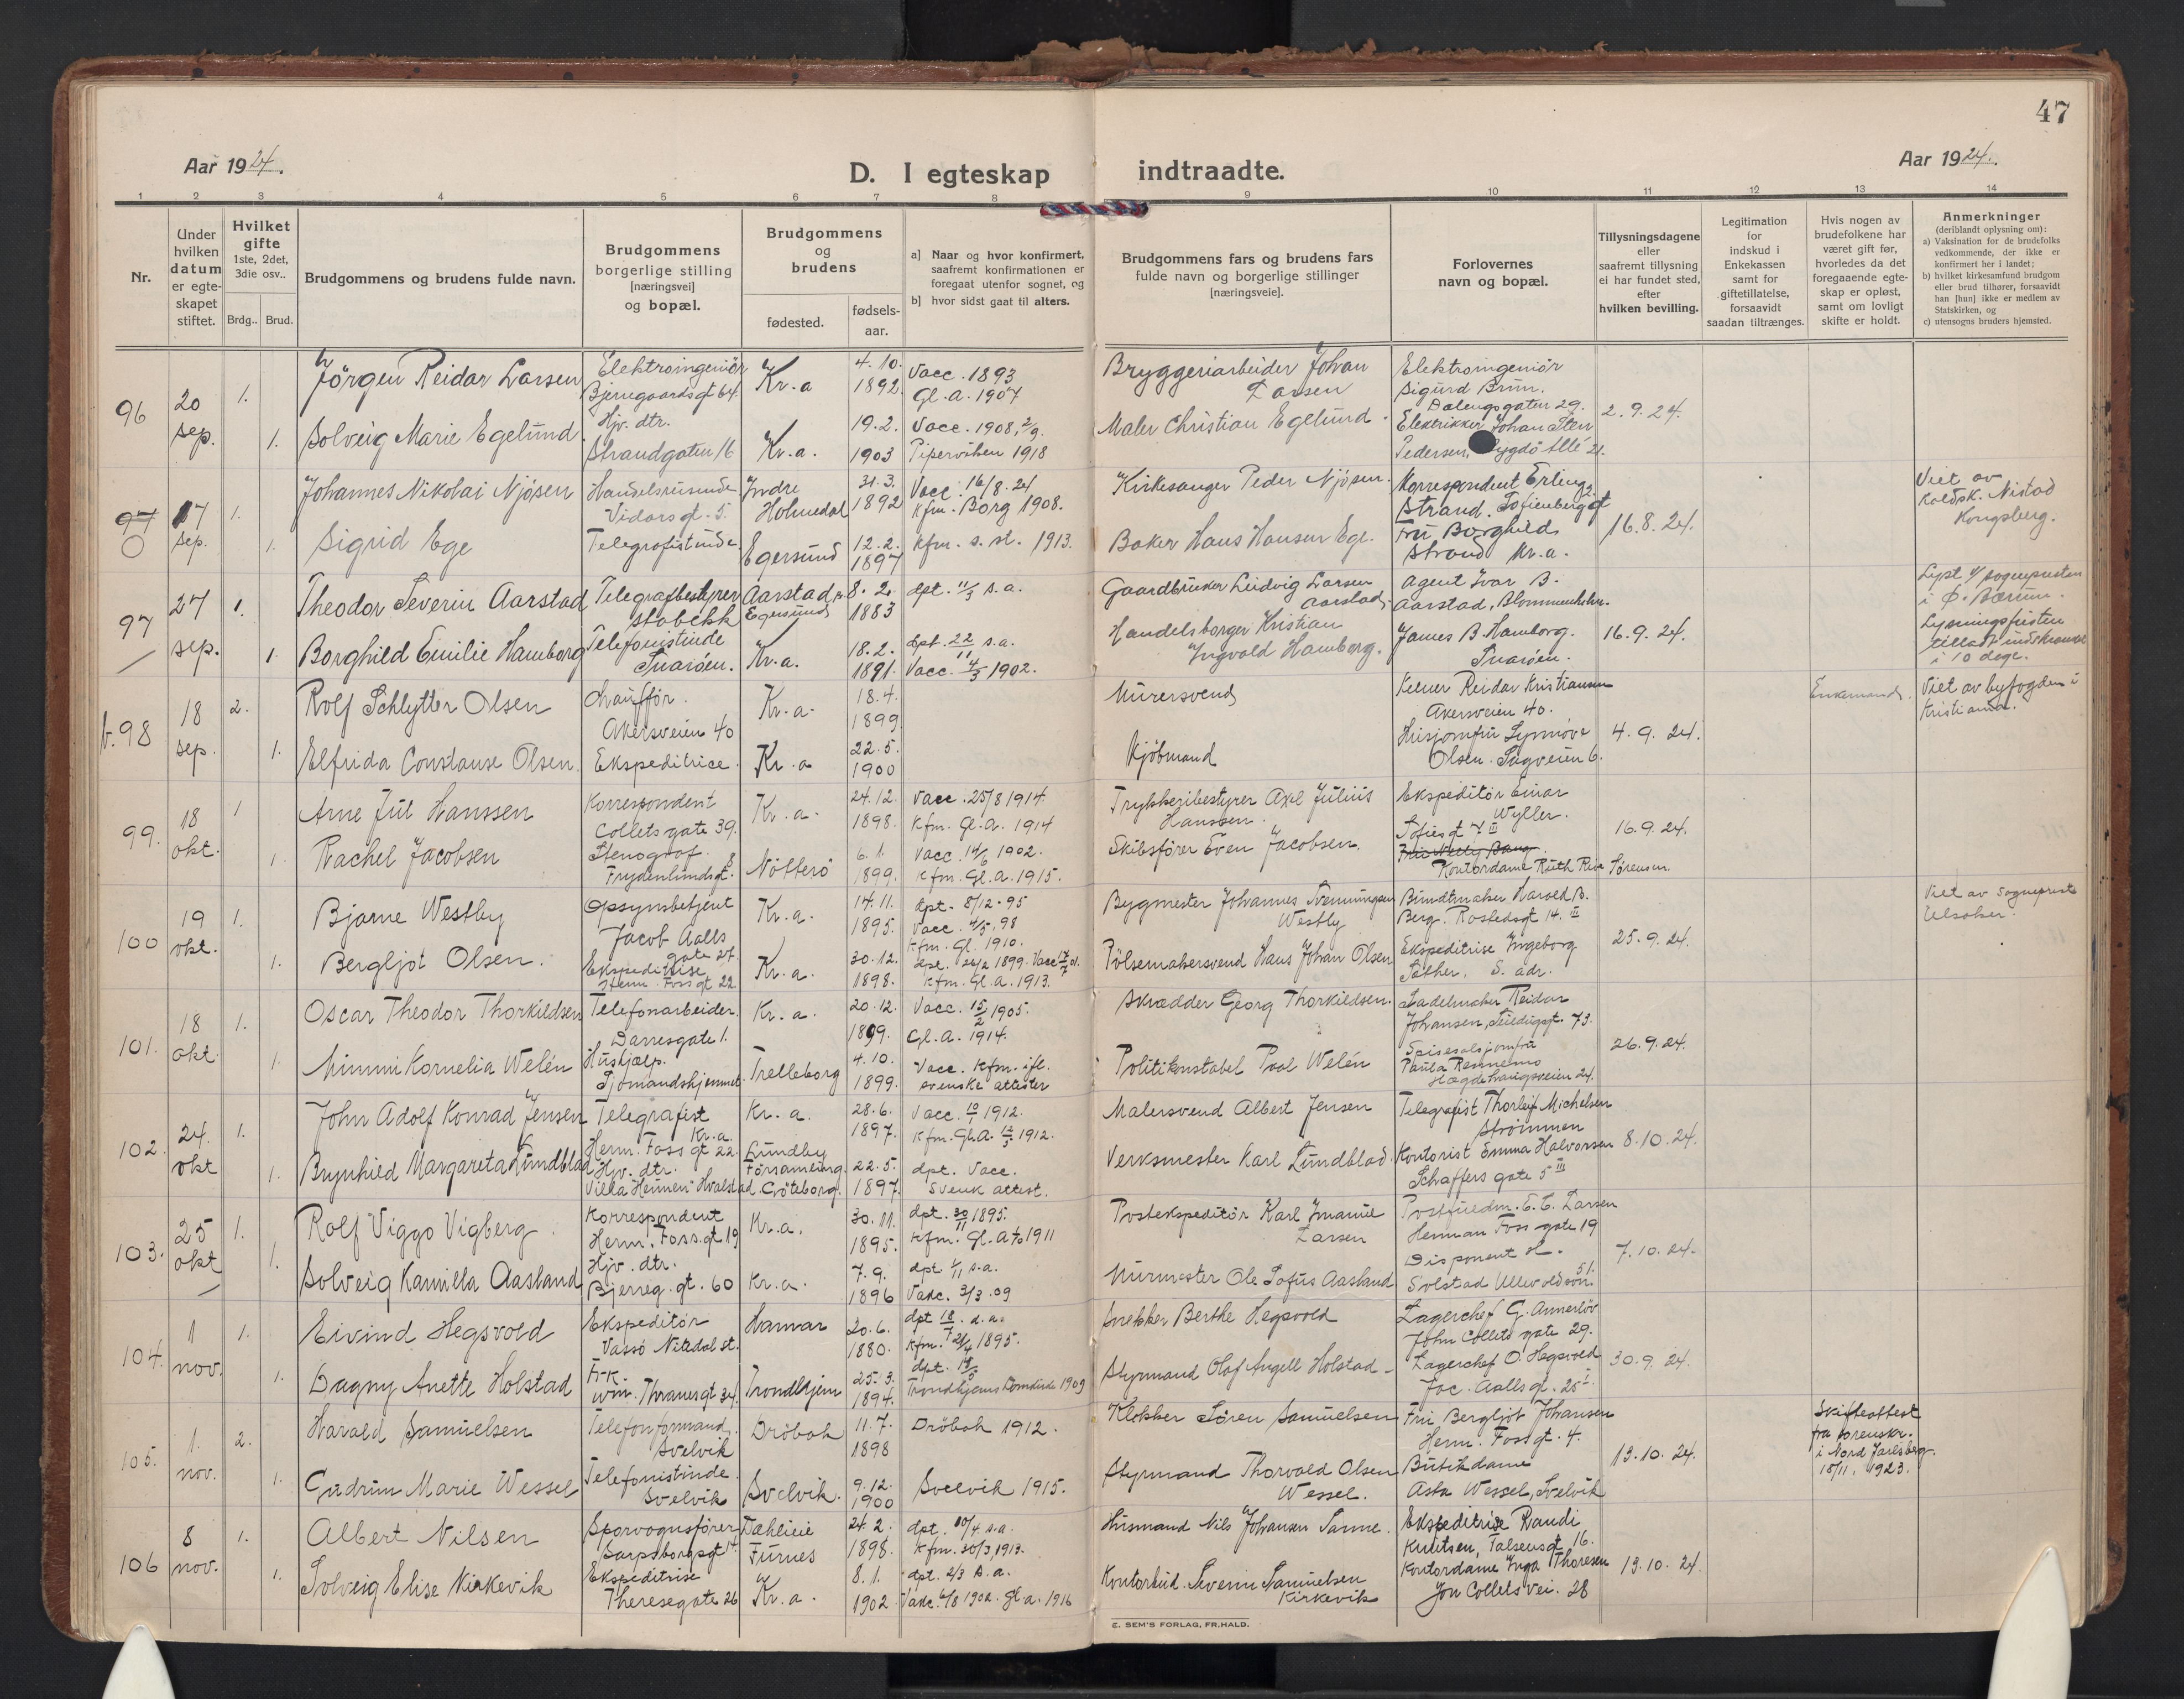 47
Aar 1924.
D. I egteskap indtraadte.
Aar 1924.
1 2 3 4 5 6 7 8 9 10 11 12 13 14
Nr.
Under hvilken datum er egteskapet stiftet.
Hvilket gifte 1ste, 2det, 3die osv..
Brdg.. Brud.
Brudgommens og brudens fulde navn.
Brudgommens borgerlige stilling [næringsvei] og bopæl.
Brudgommens og brudens
fødested.
fødselsaar.
a] Naar og hvor konfirmert, saafremt konfirmationen er foregaat utenfor sognet, og
b] hvor sidst gaat til alters.
Brudgommens fars og brudens fars fulde navn og borgerlige stillinger [næringsveie].
Forlovernes navn og bopæl.
Tillysningsdagene eller saafremt tillysning ei har fundet sted, efter hvilken bevilling.
Legitimation for indskud i Enkekassen samt for giftetillatelse, forsaavidt saadan tiltrænges.
Hvis nogen av brudefolkene har været gift før, hvorledes da det foregaaende egteskap er opløst, samt om lovligt skifte er holdt.
Anmerkninger (deriblandt oplysning om):
a) Vaksination for de brudefolks vedkommende, der ikke er konfirmert her i landet;
b) hvilket kirkesamfund brudgom eller brud tilhører, forsaavidt han [hun] ikke er medlem av Statskirken, og
c) utensogns bruders hjemsted.
96 20 sep. 1. Jörgen Reidar Larsen Elektroingeniör Bjerregaardsgt 64. Kr.a 4.10. 1892. Vacc. 1893 Gl.a. 1907 Bryggeriarbeider Johan Larsen Elektroingeniör Sigurd Brun. Dalengsgaten 29. 2.9.24.
1. Solveig Marie Egelund Hjv. dtr. Strandgaten 16 Kr.a. 19.2. 1903 Vacc. 1908, 2/9. Piperviken 1918 Maler Christian Egelund. Elektrikker Johan Sten Pedersen, Bygdö Allé 21.
97 17 sep. 1. Johannes Nikolai Njösen Handelsreisende Vidarsgt. 5. Indre Holmedal 31.3. 1892 Vacc. 16/8.24 Kfm. Borg 1908. Kirkesanger Peder Njösen. Korrespondent Erling Strand. Sofienberggt 16.8.24. Viet av Kaldsk. Nistad Kongsberg.
1. Sigrid Ege Telegrafistinde Egersund 12.2. 1897 Kfm. s. st. 1913. Baker Hans Hansen Ege. Fru Borghild Strand Kr.a.
97 27 sep. 1. Theodor Severin Aarstad Telegrafbestyrer Stabekk Aarstad, Egersund 8.2. 1883 dpt. 11/3 s.a. Gaardbruker Ludvig Larsen Aarstad, Agent Ivar B. Aarstad, Blommenholm. 16.9.24. Lyst v/ sogneprsten i Ø. Bærum. Lysningsfristen tillatt indskrænket i 10 dage.
1. Borghild Emilie Hamborg Telefonistinde Snaröen. Kr.a. 18.2. 1891. dpt. 22/11 s.a. Vacc. 4/3 1902. Handelsborger Kristian Ingvald Hamborg. James B. Hamborg. Snaröen.
b. 98 18 sep. 2. Rolf Schlytter Olsen Chaufför. Akersveien 40 Kr.a. 18.4. 1899. Murersvend Kelner Reidar Kristiansen Akersveien 40. 4.9.24. Enkemand. Viet av byfogden i Kristiania.
1. Elfrida Constanse Olsen. Ekspeditrice. Kr.a 22.5. 1900 Kjöbmand Husjomfru Synnöve Olsen. Sagveien 6.
99. 18 okt. 1 Arne Jul Hanssen Korrespondent Collets gate 39. Kr.a. 24.12. 1898. Vacc. 25/8 1914. Kfm. Gl.a. 1914 Trykkeribestyrer Axel Julius Hanssen. Ekspeditör Einar Wyller. Sofies gt 7 III 16.9.24.
1. Rachel Jacobsen Stenograf. Frydenlundsgt. 8 Nötterö 6.1. 1899. Vacc. 14/6 1902. Kfm. Gl.a. 1915. Skibsförer Even Jacobsen. Fru Nelly Bang. Kontordame Ruth Sörensen.
100 19 okt. 1. Bjarne Westby Opsynsbetjent Jacob Aalls gate 27. Kr.a. 14.11. 1895. dpt. 8/12.95 Vacc. 4/5.98 Kfm. Gl. 1910. Bygmester Johannes Svenningsen Westby Bundtmaker Harald B. Berg. Rostedsgt 14. III 25.9.24. Viet av Sogneprest
1. Bergljot Olsen. Ekspeditrise Herm. Foss gt 22 Kr.a. 30.12. 1898. dpt. 26/12 1899. Kfm. Gl.a. 1913. Pölsemakersvend Hans Johan Olsen Ekspeditrise Ingeborg Sæther, S. adr.
101. 18 okt. 1. Oscar Theodor Thorkildsen Telefonarbeider. Darresgate 1. Kr.a. 20.12. 1899. Vacc. 15/2 1905. Gl.a. 1914. Skrædder Georg Thorkildsen. Sadelmaker Reidar Johansen, Seildugsgt. 73. 26.9.24.
1. Mimmi Kornelia Welén Hushjælp. Sjömandshjemmet. Trelleborg 4.10. 1899. Vacc. Kfm. ifl. svenske attester Politikonstabel Paal Welén Spisesalsjomfru Paula Rennemo Hægdehaugsveien 24.
102. 24. okt 1. John Adolf Konrad Jensen Telegrafist Kr.a. Herm. Foss gt 22. Kr.a. 28.6. 1897. Vacc. 10/1 1912. Kfm. Gl.a. 1912. Malersvend Albert Jensen Telegrafist Thorleif Michelsen Strömmen 8.10.24.
1. Brynhild Margareta Lundblad Hjv. dtr. Villa "Heimen" Hvalstad. Lundby Församling. Göteborg. 22.5. 1897. dpt. Vacc. Svensk attest. Verksmester Karl Lundblad. Kontorist Emma Halvorsen Schaffers gate 5 III
103. 25 okt 1. Rolf Viggo Vigberg. Korrespondent Herm. Foss. gt 19 Kr.a. 30.11. 1895. dpt. 30/11 1895. Kfm. Gl.a. 1911 Postekspeditör Karl Imanuel Larsen Postfuldm. E.C. Larsen Herman Foss gate 19 7.10.24.
1. Solveig Kamilla Aasland Hjv. dtr. Bjerreg. gt. 60 Kr.a. 7.9. 1896 dpt. 1/11 s.a. Vakc. 3/3.09 Murmester Ole Sofus Aasland Disponent H. Solstad Ullevoldsvn. 51.
104. 1 nov. 1. Eivind Hegsvold Ekspeditör Vassö Nitedal st. Hamar 20.6. 1880. dpt 18/7. s.a. Kfm. 21/4 1895. Snekker Berthe Hegsvold Lagerchef G. Annerlöv John Collets gate 29. 30.9.24.
1. Dagny Anette Holstad Frk. Wm. Thranesgt 34. Trondhjem 25.3. 1894. dpt. 14/5 Trondhjems Domkirke 1909 Styrmand Olaf Angell Holstad - Lagerchef O. Hegsvold Jac. Aalls gt. 25 I.
105. 1. nov. 2. Harald Samuelsen Telefonformand. Svelvik Dröbak 11.7. 1898 Dröbak 1912. Klokker Sören Samuelsen Fru Bergljot Johansen Herm. Foss gt. 4. 13.10.24. Skifteattest fra sorenskr. i Nord Jarlsberg. 18/11. 1923.
1. Gudrun Marie Wessel Telefonistinde. Svelvik Svelvik. 9.12. 1900 Svelvik 1915. Styrmand Thorvald Olsen Wessel. Butikdame Asta Wessel, Svelvik
106 8 nov. 1. Albert Nilsen Sporvognsförer Sarpsborggt 14 Dæhlieie Furnes 24.2. 1898. dpt. 10/4 s.a. Kfm. 30/3, 1913. Husmand Nils Johansen Sanne. Ekspeditrise Randi Knutsen, Falsensgt 16. 13.10.24.
1. Solveig Elise Kirkevik Ekspeditrise Theresegate 26 Kr.a. 8.1. 1902 dpt. 2/3 s.a. Vakc. 6/8 1902. Gl.a. 1916 Kontorbud Severin Samuelsen Kirkevik Kontordame Inga Thoresen Jon Collets vei. 28
E. SEM'S FORLAG, FR.HALD.